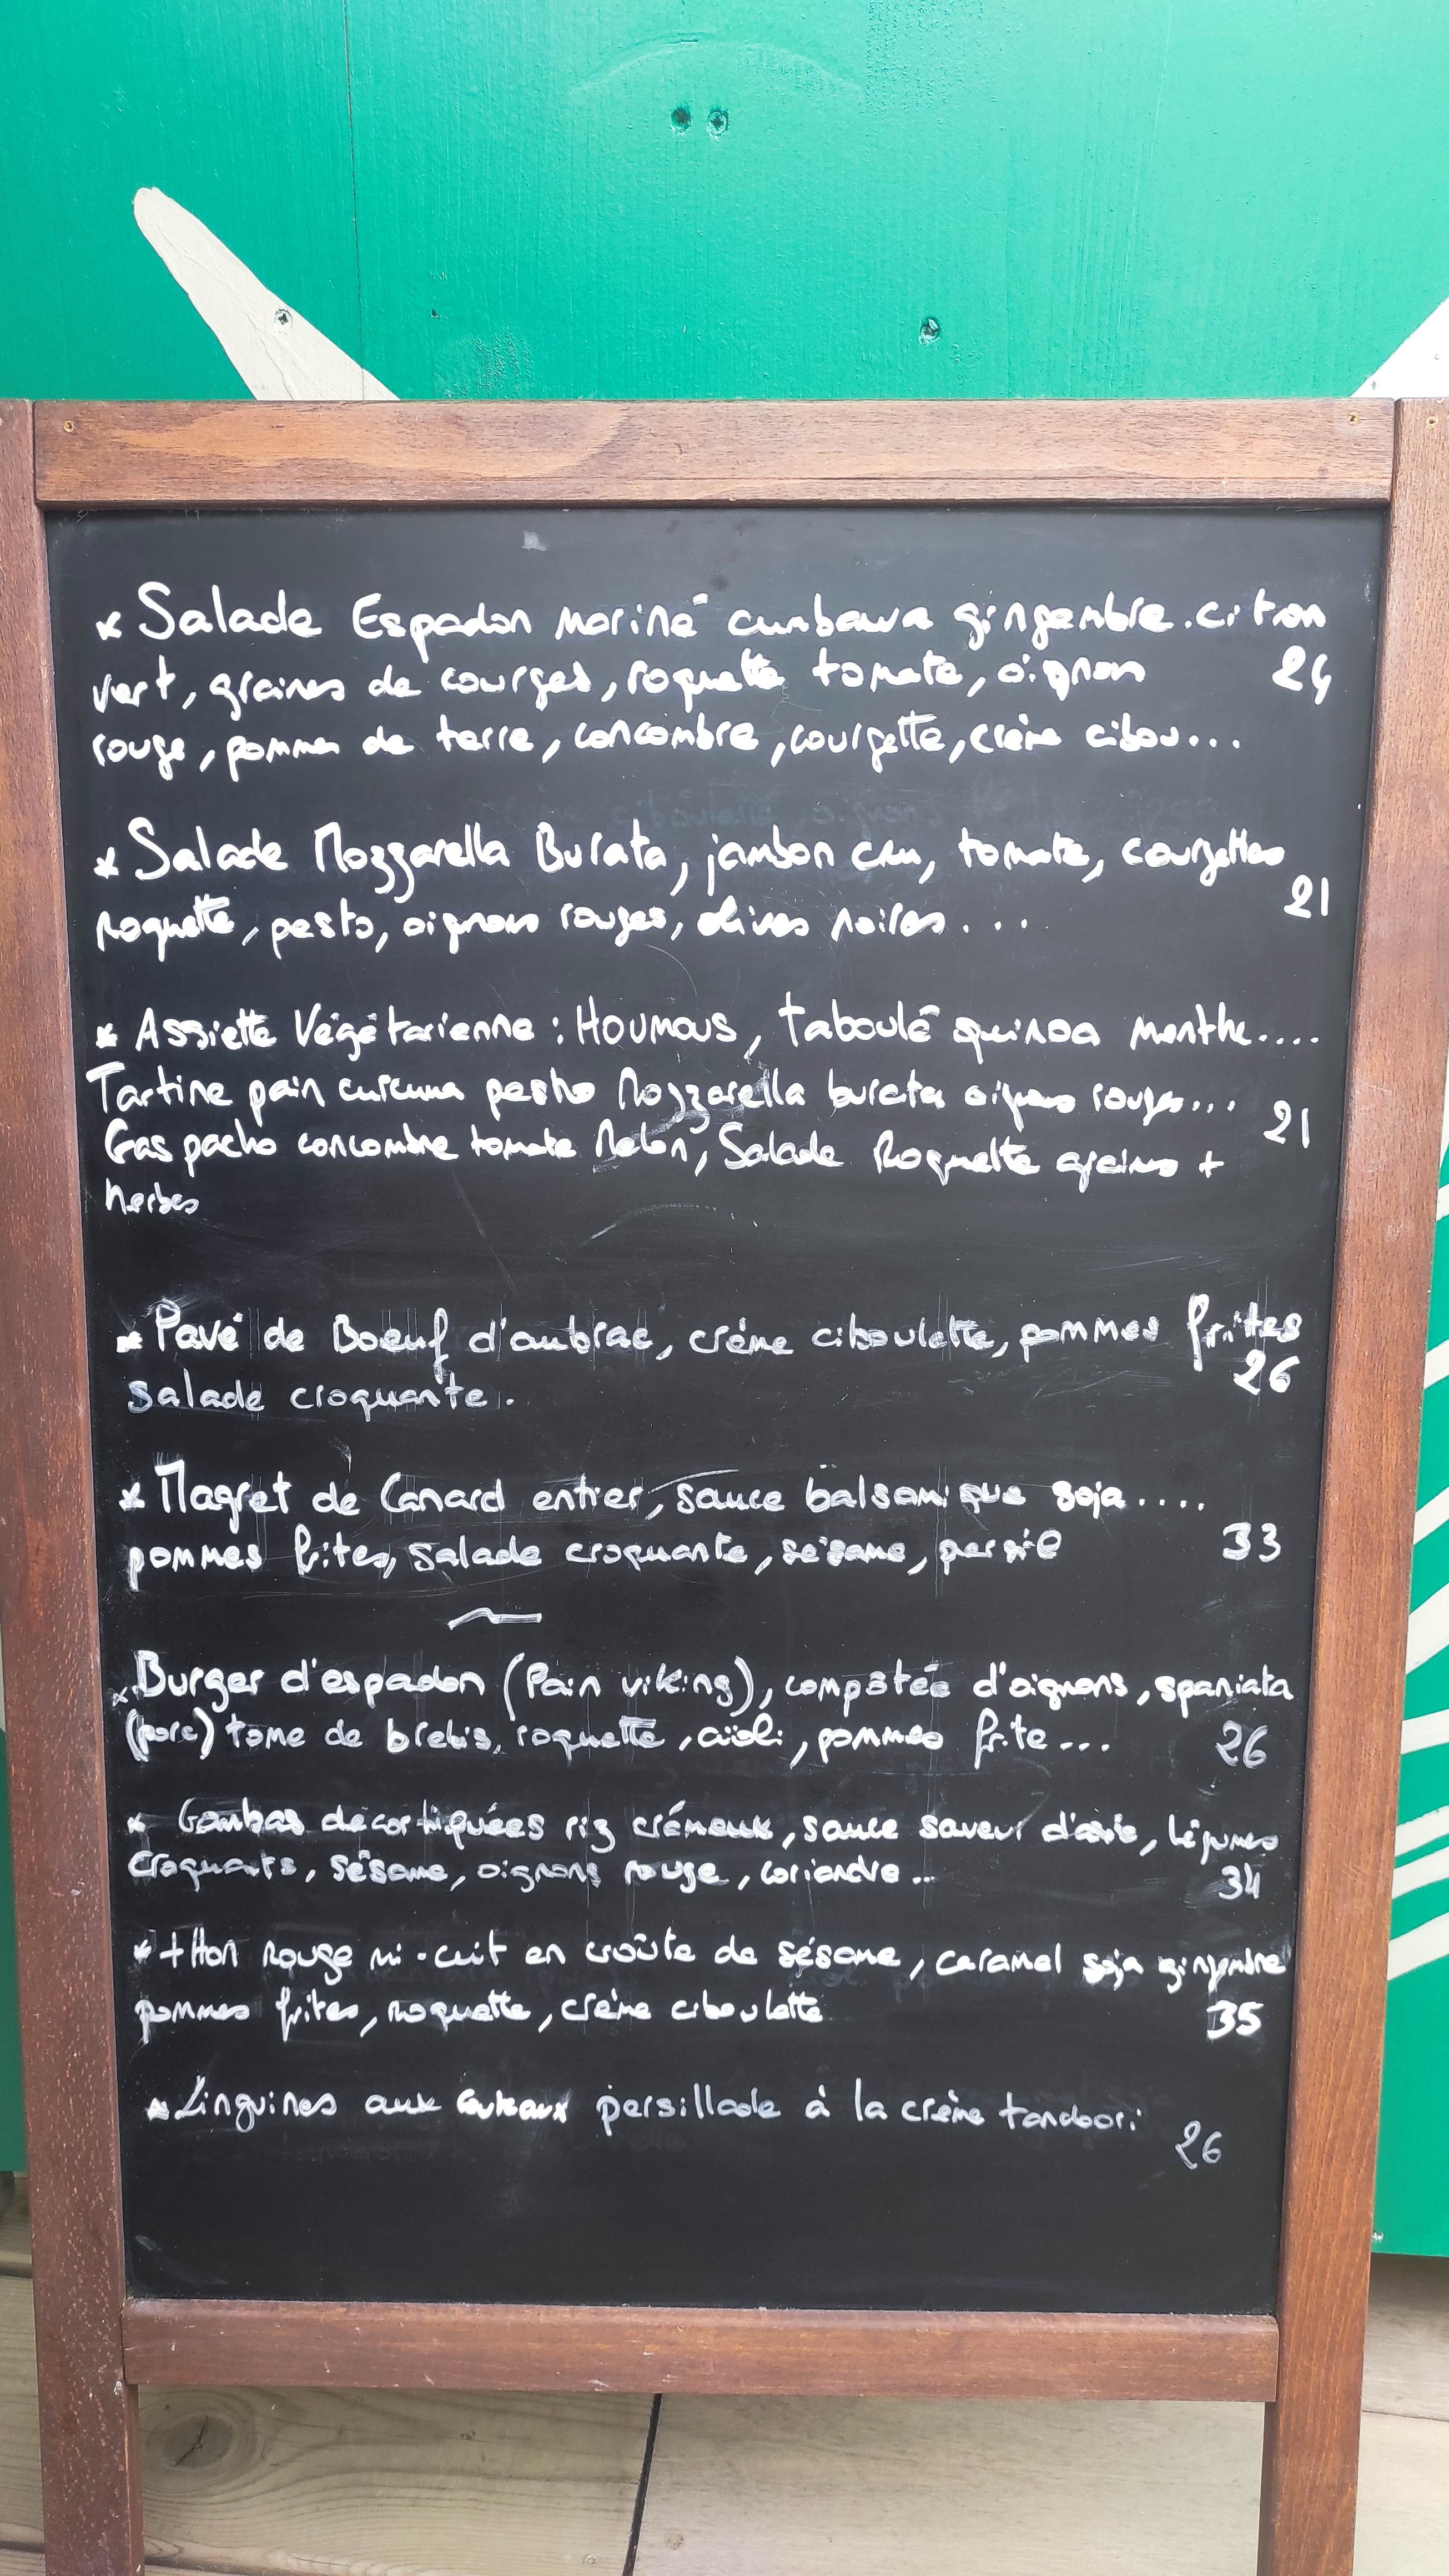 * Salade Espadon mariné cumbawa gingembre.citron
vert, graines de courges, roquette tomate, oignon 24
rouge, pommes de terre, concombre, courgette, crème cibou...
* Salade Mozzarella Burata, jambon cru, tomate, courgettes
roquette, pesto, oignons rouges, olives noires.... 21
* Assiette Végétarienne : HOUMOUS, taboulé quinoa menthe....
Tartine pain curcuma pesto Mozzarella burata oignons rouges...
Gaspacho concombre tomate Melon, Salade Roquette graines + 21
herbes
* Pavé de Boeuf d'aubrac, crème ciboulette, pommes frites
salade croquante. 26
* Magret de Canard entier, sauce balsamique soja....
pommes frites, salade croquante, sésame, persil 33
* Burger d'espadon (Pain viking), compotée d'oignons, spaniata
(porc) tome de brebis, roquette, aïoli, pommes frite... 26
* Gambas décortiquées riz crémeux, sauce saveur d'asie, légumes
croquants, sésame, oignons rouge, coriandre... 34
* tHon Rouge mi-cuit en croûte de sésame, caramel soja gingembre
pommes frites, roquette, crème ciboulette 35
* Linguines aux couteaux persillade à la crème tandoori
26